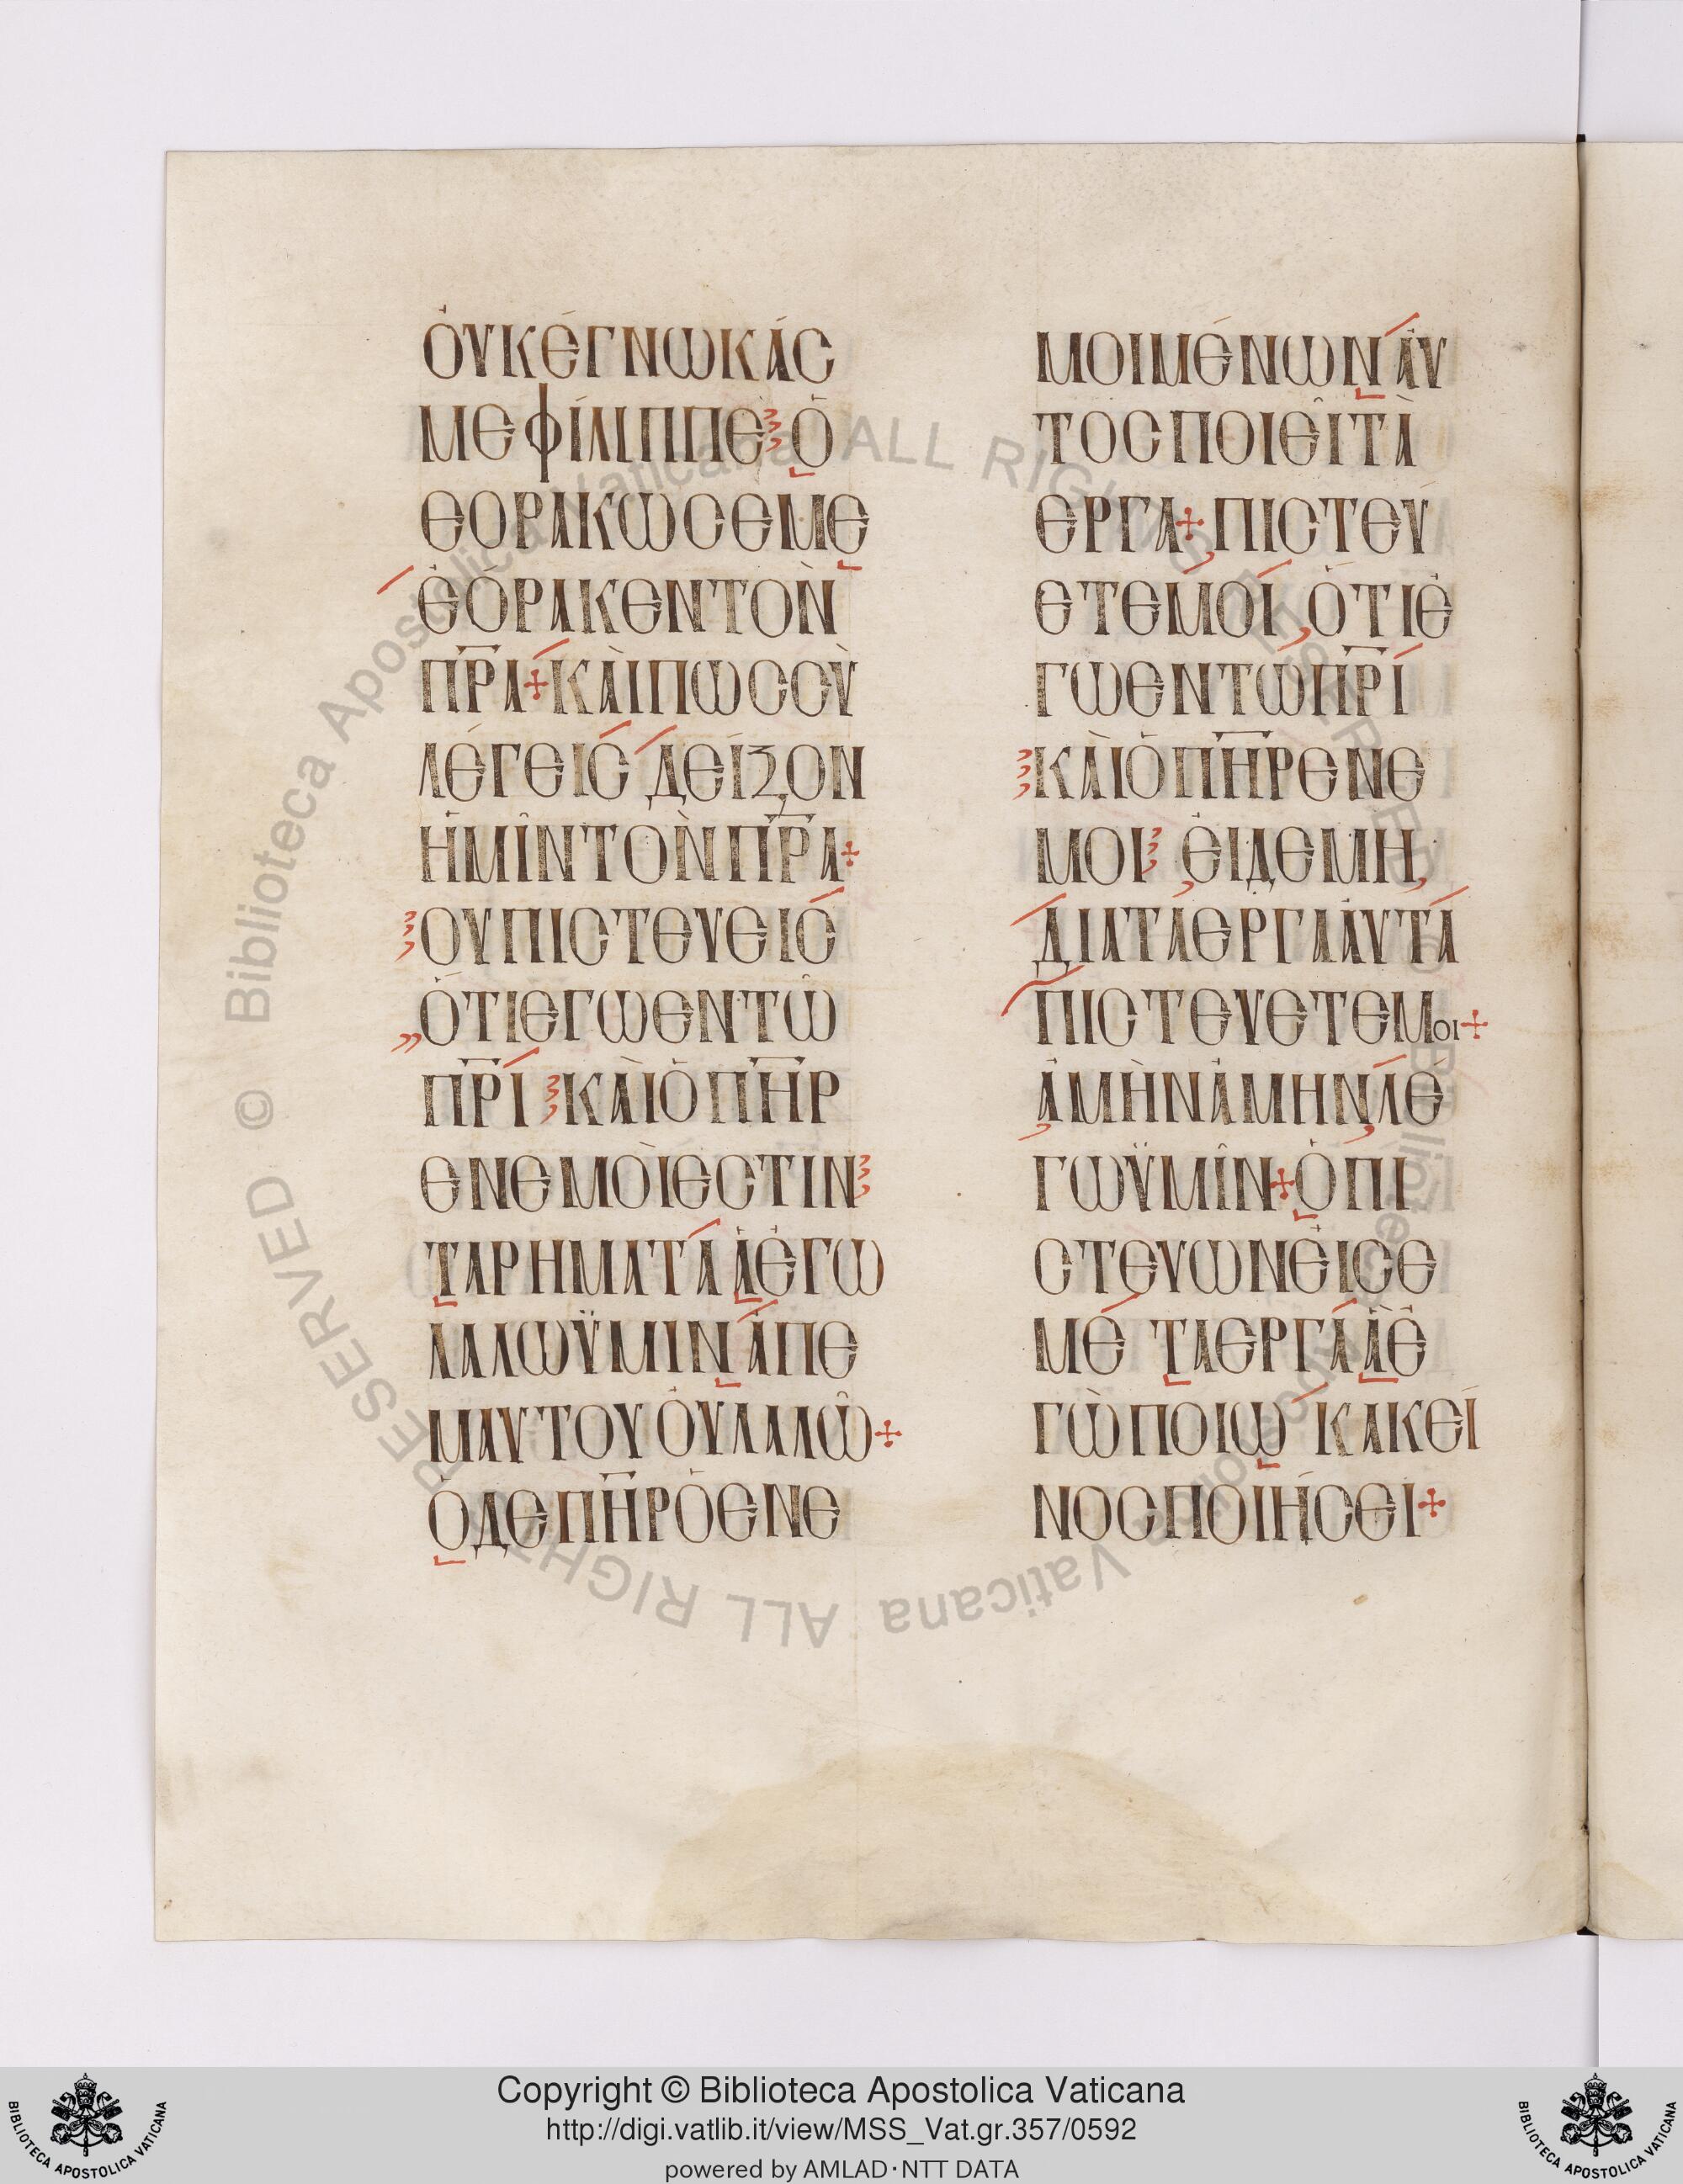 ὀυκέγνωκάς
μεφίλιππε ὁ
εορακωσεμε
ἑόρακεντὸν
π̅ρ̅α κὰιπωσσὺ
λέγεισ δείξον
ἡμῖντὸνπ̅ρ̅α
ουπιστευεισ
ὅτιεγωεντῶ
π̅ρ̅ι κὰιὁπ̅η̅ρ
ενεμοὶεστιν
ταρηματα ἁἐγω
λαλωϋμιν ἀπε
μαυτου ὀυλαλῶ
ὁδεπ̅η̅ρὁενε
μοιμένων ἀυ
τοσποιεῖτὰ
εργα πιστευ
ετεμοι ὅτιἐ
γωεντωπ̅ρ̅ι
κὰιὁπ̅η̅ρενε
μοι ἐιδεμη
διαταεργαἀυτα
πιστευετεμοι
ἀμὴνἀμην λε
γωϋμῖν ὁπι
στευωνἐισε
με ταεργα ἃἐ
γὼποιω κακεί
νοσποιήσει
Biblioteca Apostolica Vaticana ALL RIGHTS RESERVED ©
Biblioteca Apostolica Vaticana ALL RIGHTS RESERVED ©
Copyright © Biblioteca Apostolica Vaticana
http://digi.vatlib.it/view/MSS_Vat.gr.357/0592
powered by AMLAD·NTT DATA
BIBLIOTECA APOSTOLICA VATICANA
BIBLIOTECA APOSTOLICA VATICANA